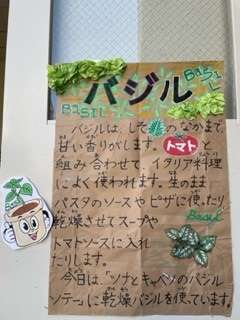 バジル
BASIL
BASIL
バジルは、しそ科のなかまで、
甘い香りがします。トマトと
組み合わせて、イタリア料理
によく使われます。生のまま
パスタのソースやピザに使ったり
乾燥させてスープや
Basil
トマトソースに入れ
たりします。
今日は「ツナとキャベツのバジル
ソテー」に乾燥バジルを使っています。